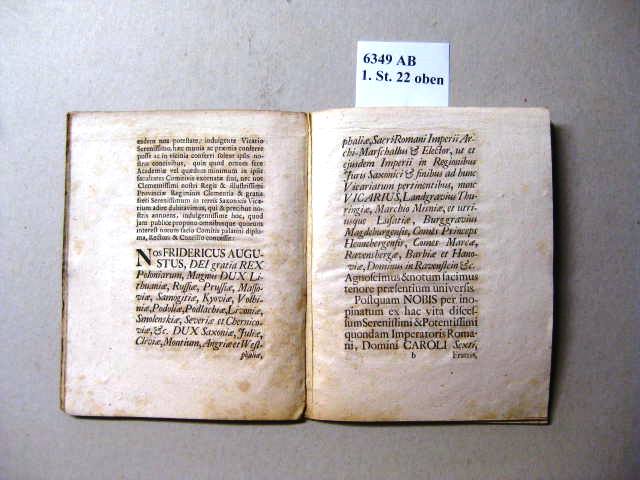 6349 AB
1. St. 22 oben
eadem nos potestate, indulgente Vicario
Serenissimo, hac munia ac præmia conferre
posse ac in vicinia conferri solent ipsis no-
stris concivibus, quin quod omnes fere
Academiæ vel quædam minimum in ipsis
facultates Comitiva exornatæ sint, nec nos
Clementissimi nostri Regis & illustrissimi
Provinciæ Regiminis Clementia & gratia
freti Serenissimum in terris Saxonicis Vica-
rium adire dubitavimus, qui & precibus no-
stris annuens, indulgentissime hoc, quod
jam publice propono omnibusque quorum
interest notum facio Comitis palatini diplo-
ma, Rectori & Concilio concessit:
NOS FRIDERICUS AUGU-
STUS, DEI gratia REX
Poloniarum, Magnus DUX Li-
thuaniæ, Russiæ, Prussiæ, Masso-
viæ, Samogitiæ, Kyoviæ, Volhi-
niæ, Podoliæ, Podlachiæ, Livoniæ,
Smolenskiæ, Severiæ et Chernico-
viæ, &c. DUX Saxoniæ, Juliæ,
Cliviæ, Montium, Angriæ et West-
phaliæ,
phaliæ, Sacri Romani Imperii Ar-
chi-Marschallus & Elector, ut et
ejusdem Imperii in Regionibus
Juris Saxonici & finibus ad hunc
Vicariatum pertinentibus, nunc
VICARIUS, Landgravius Thu-
ringiæ, Marchio Misniæ, et utri-
usque Lusatiæ, Burggravius
Magdeburgensis, Comes Princeps
Hennebergensis, Comes Marcæ,
Ravensbergæ, Barbiæ et Hano-
viæ, Dominus in Ravenstein &c.
Agnoscimus & notum facimus
tenore præsentium universis.
Postquam NOBIS per ino-
pinatum ex hac vita disces-
sum Serenissimi & Potentissimi
quondam Imperatoris Roma-
ni, Domini CAROLI Sexti,
b Fratris,